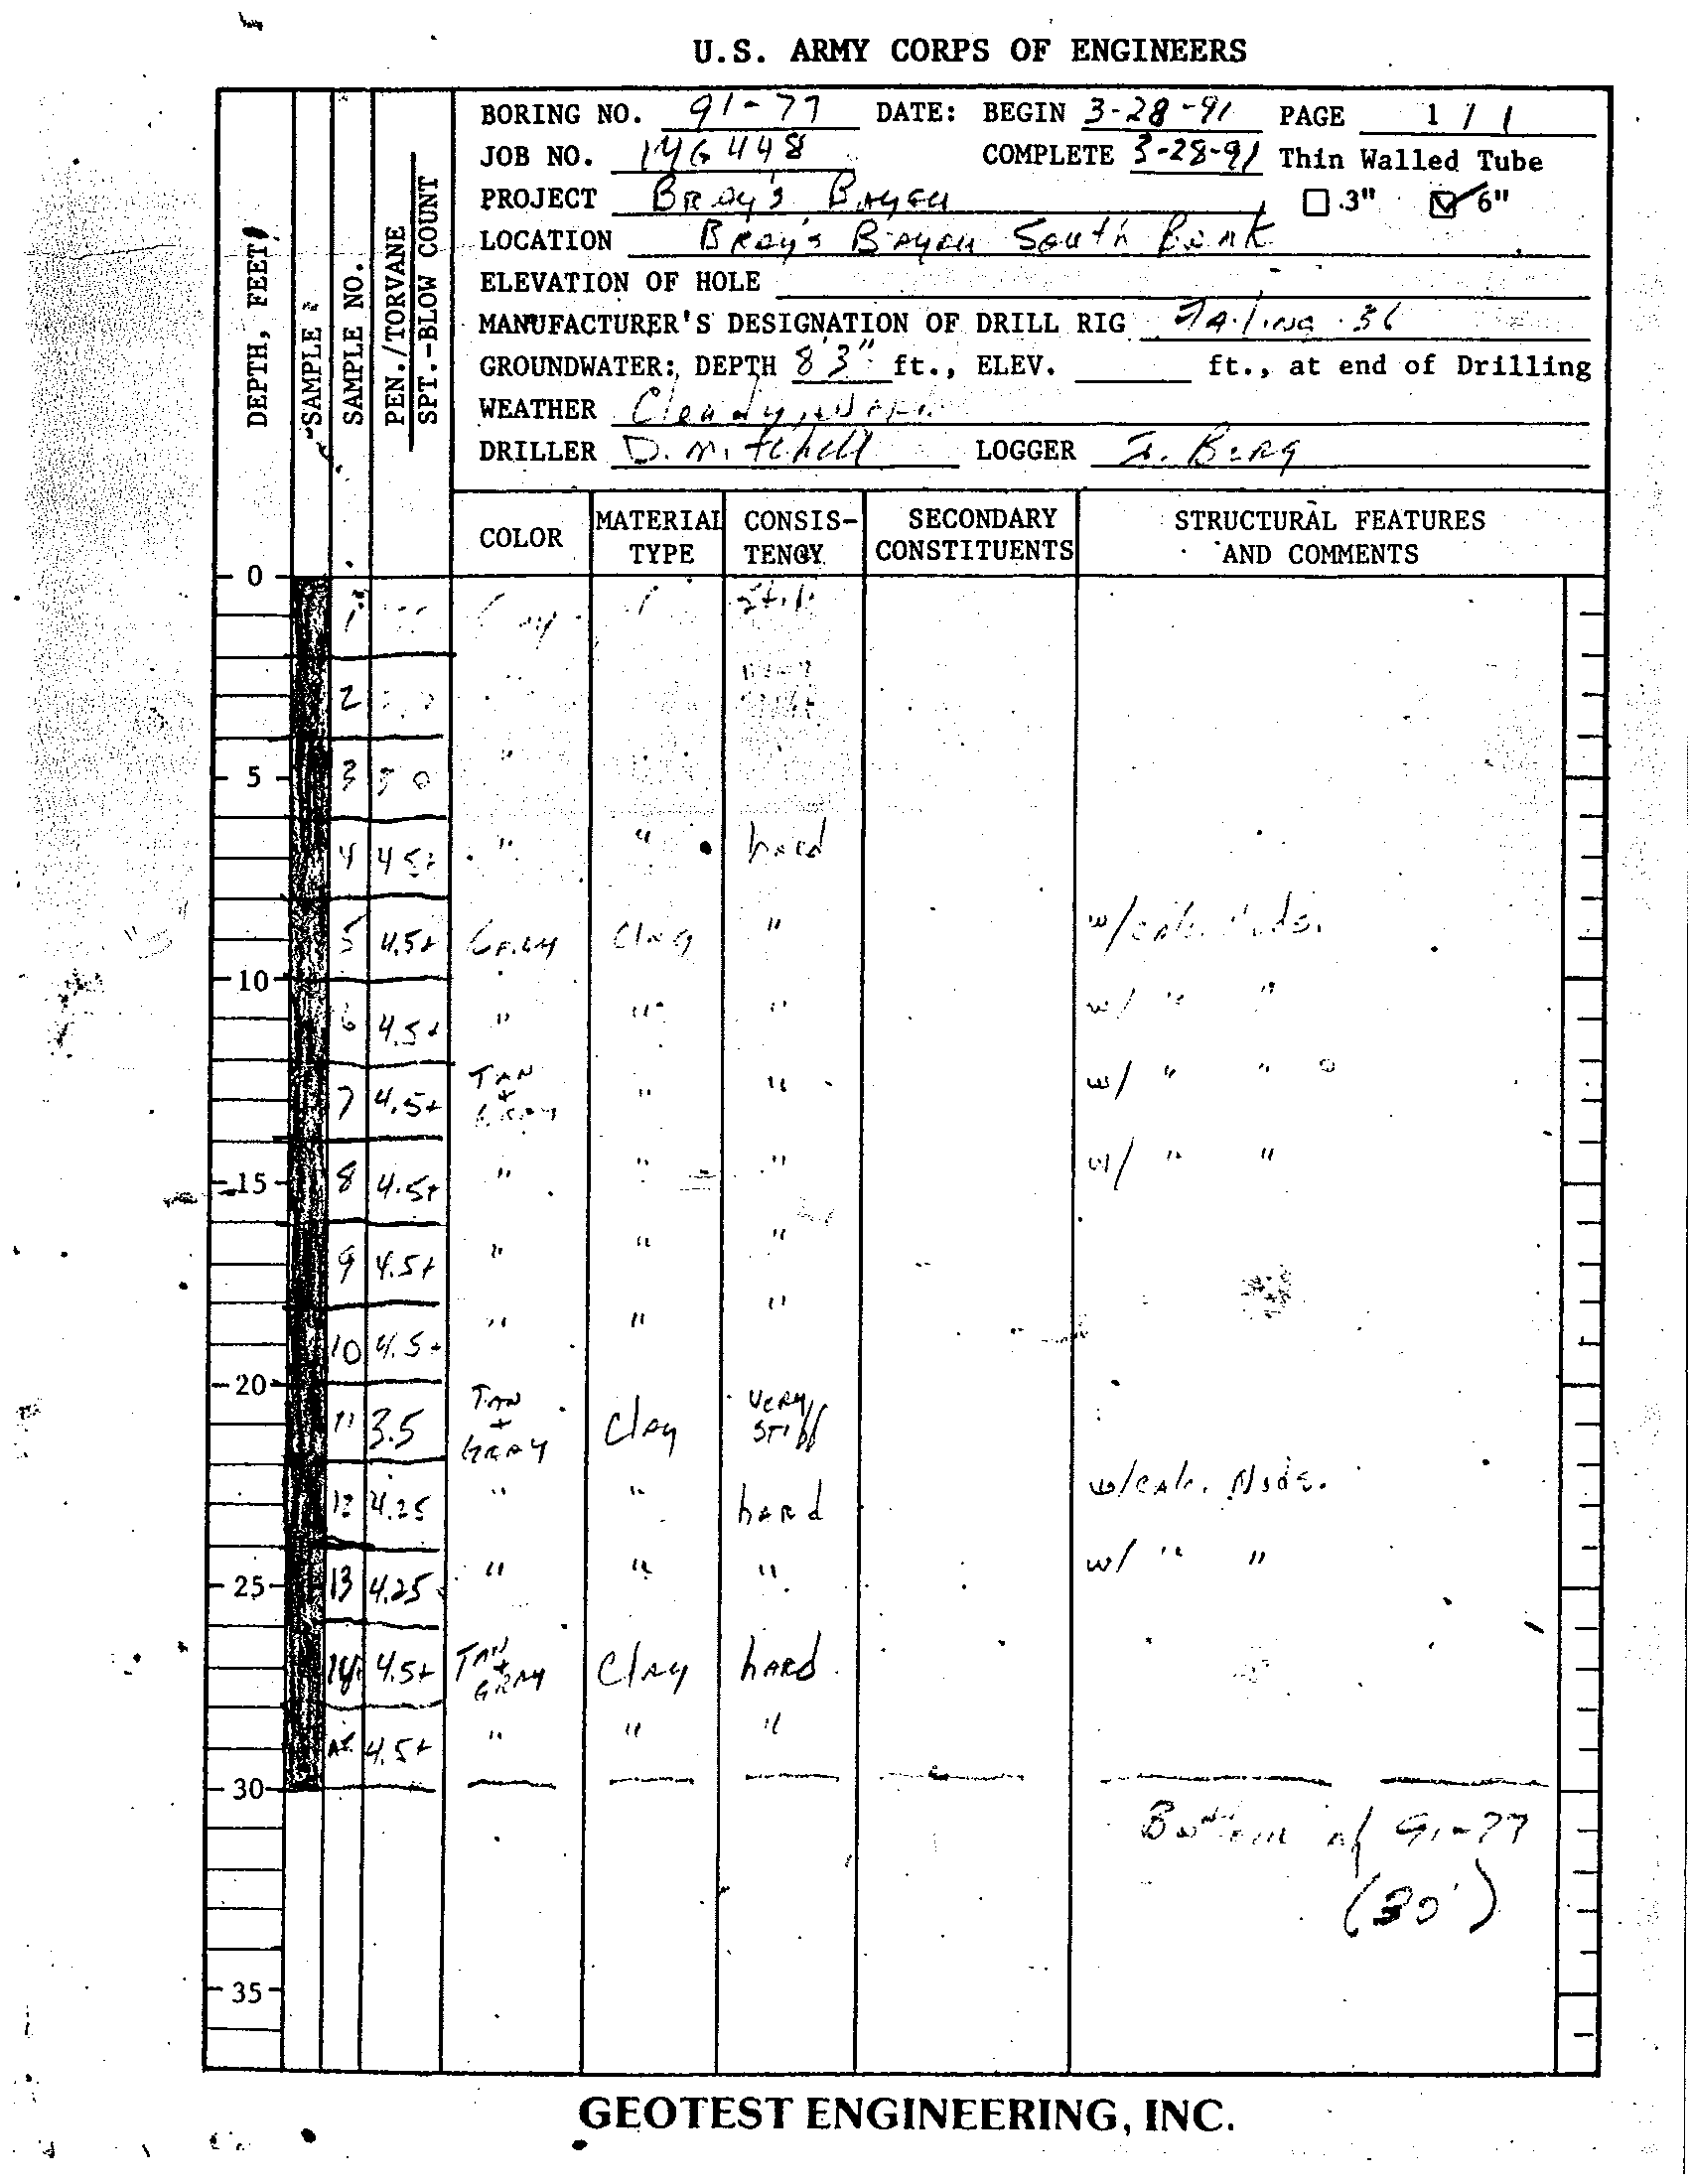 U.S. ARMY CORPS OF ENGINEERS
BORING NO. 91-77 DATE: BEGIN 3-28-91 PAGE 1 / 1
JOB NO. 14G448 COMPLETE 3-28-91 Thin Walled Tube
PROJECT Bray's Bayou 3" 6"
LOCATION Bray's Bayou South Bank
ELEVATION OF HOLE
MANUFACTURER'S DESIGNATION OF DRILL RIG Failing 36
GROUNDWATER: DEPTH 8'3" ft., ELEV. ft., at end of Drilling
WEATHER Cloudy,
DRILLER D. Mitchell LOGGER Berg
DEPTH, FEET
SAMPLE
SAMPLE NO.
PEN./TORVANE
SPT.-BLOW COUNT
COLOR MATERIAL TYPE CONSISTENCY SECONDARY CONSTITUENTS STRUCTURAL FEATURES AND COMMENTS
0
1 Stiff
2
5 3 3 0 "
4 4.5+ " " hard
5 4.5+ Gray Clay " w/calc. Nods.
10
6 4.5+ " " " w/ " "
7 4.5+ TAN + GRAY " " w/ " "
15 8 4.5+ " " " w/ " "
9 4.5+ " " "
10 4.5+ " " "
20
11 3.5 TAN + GRAY Clay VERY STIFF
12 4.25 " " hard w/calc. Nods.
25 13 4.25 " " " w/ " "
14 4.5+ TAN + GRAY Clay hard
4.5+ " " "
30
Bottom of 91-77
(30')
35
GEOTEST ENGINEERING, INC.